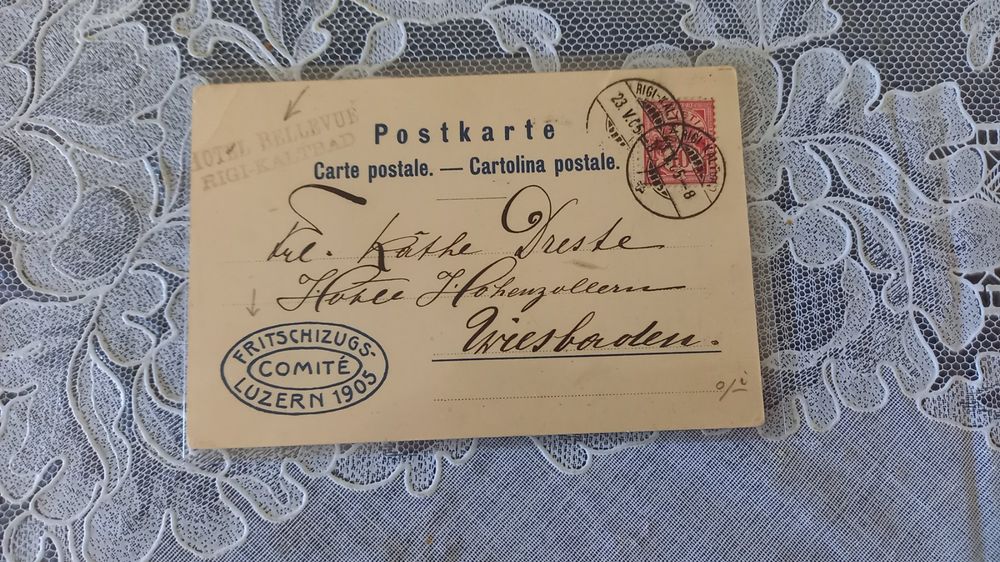 HOTEL BELLEVUE
RIGI-KALTBAD
Postkarte
Carte postale. — Cartolina postale.
RIGI-KALTBAD
23.V.05
10
Frl. Käthe Dreste
Hôtel Hohenzollern
Wiesbaden.
FRITSCHIZUGS-
COMITÉ
LUZERN 1905